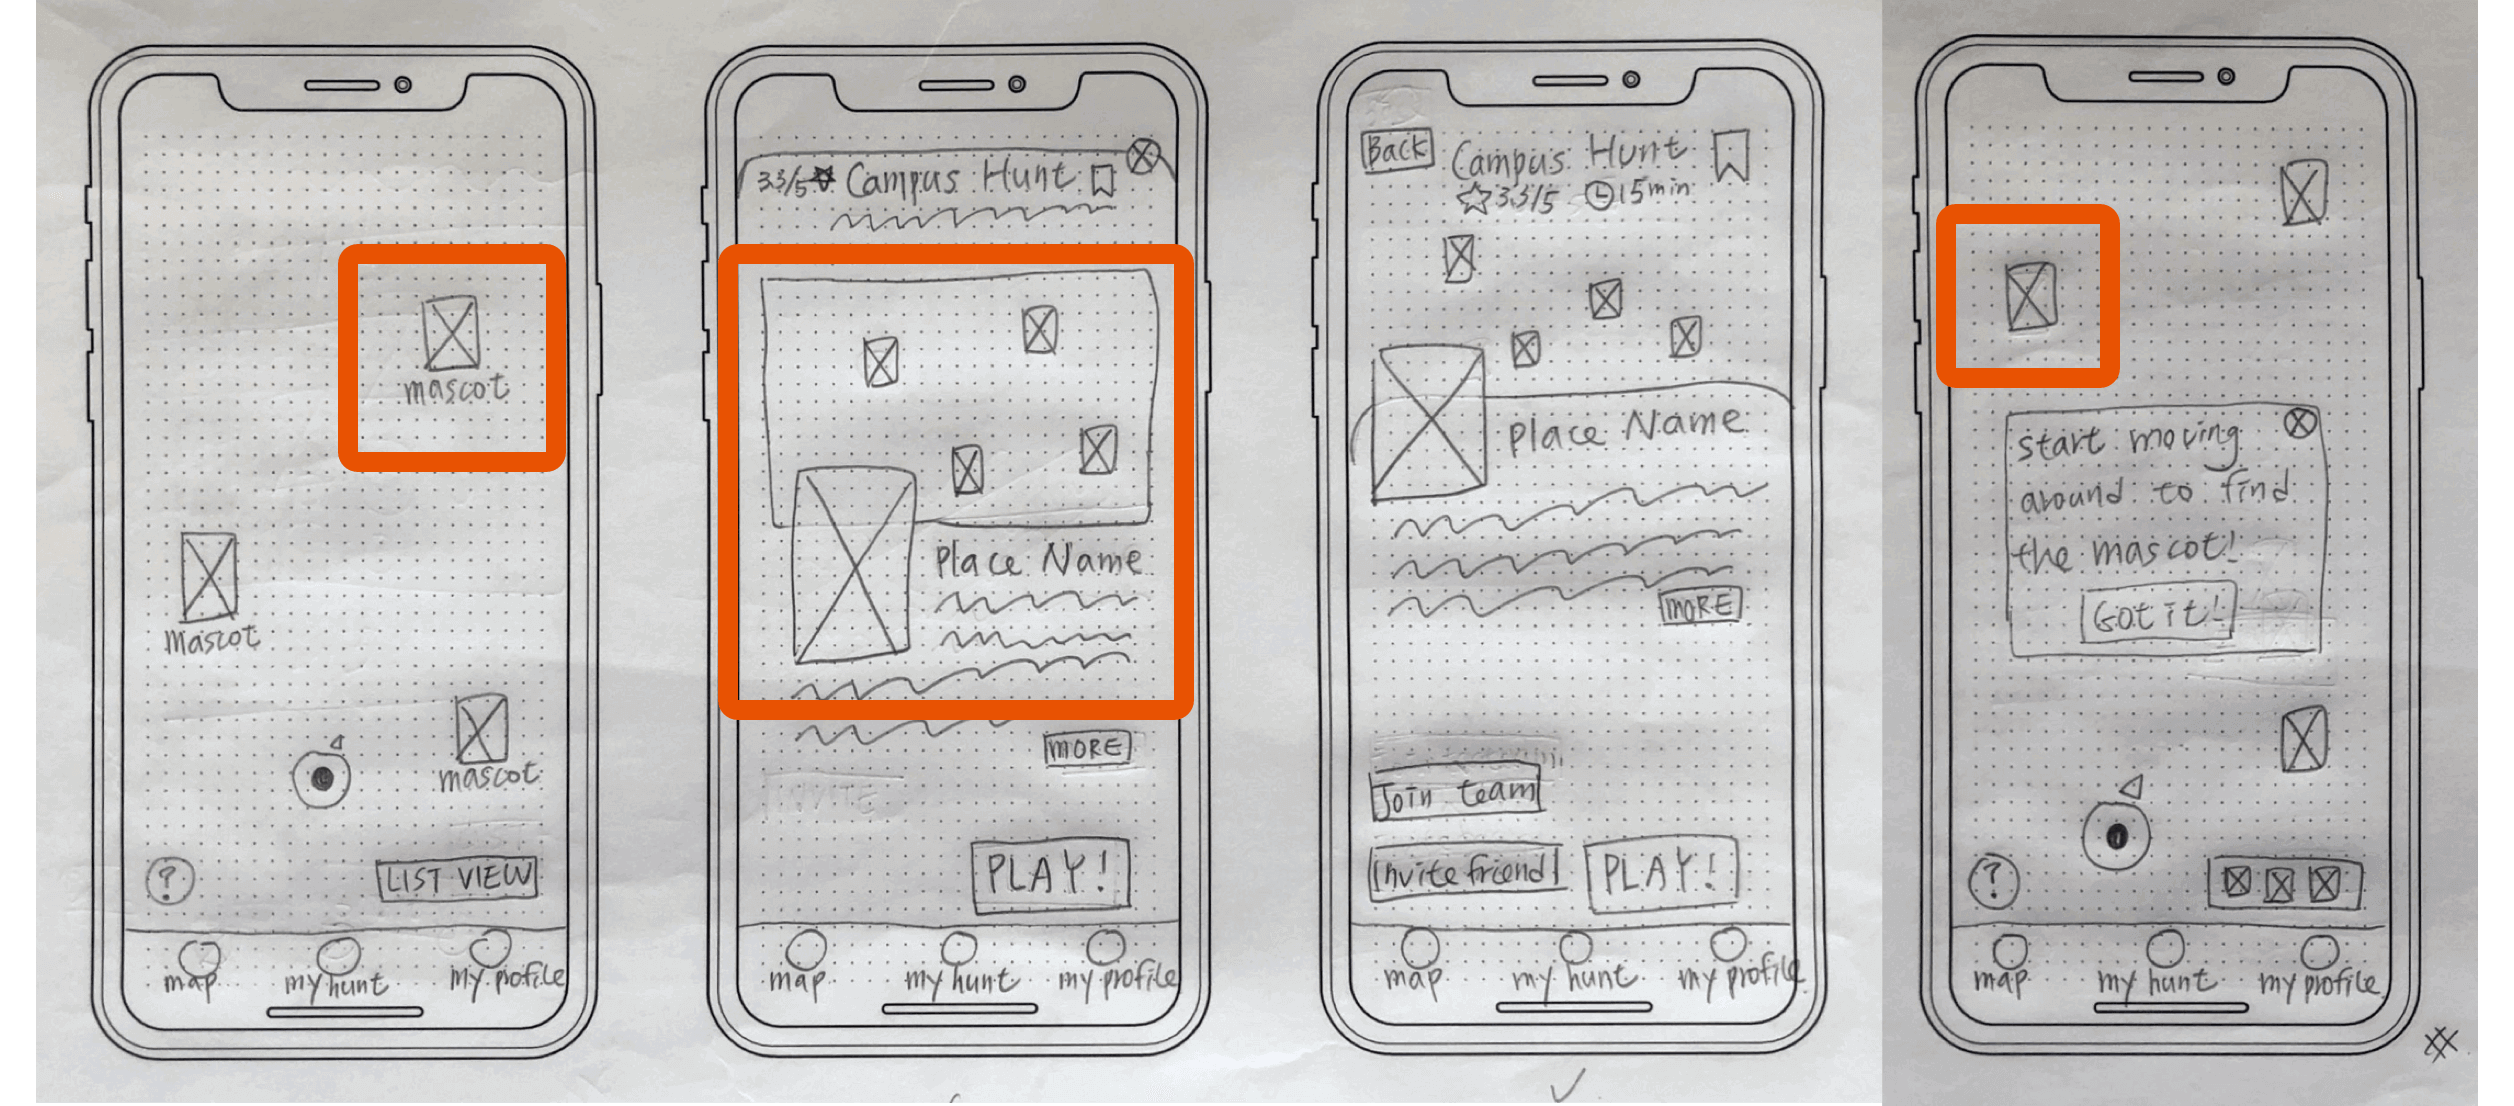 mascot
mascot
mascot
?
LIST VIEW
map
my hunt
my profile
3.3/5 Campus Hunt
Place Name
MORE
INVITE
PLAY!
map
my hunt
my profile
Back
Campus Hunt
3.3/5 15min
Place Name
MORE
Join team
Invite friend!
PLAY!
map
my hunt
my profile
start moving
around to find
the mascot!
Got it!
?
map
my hunt
my profile